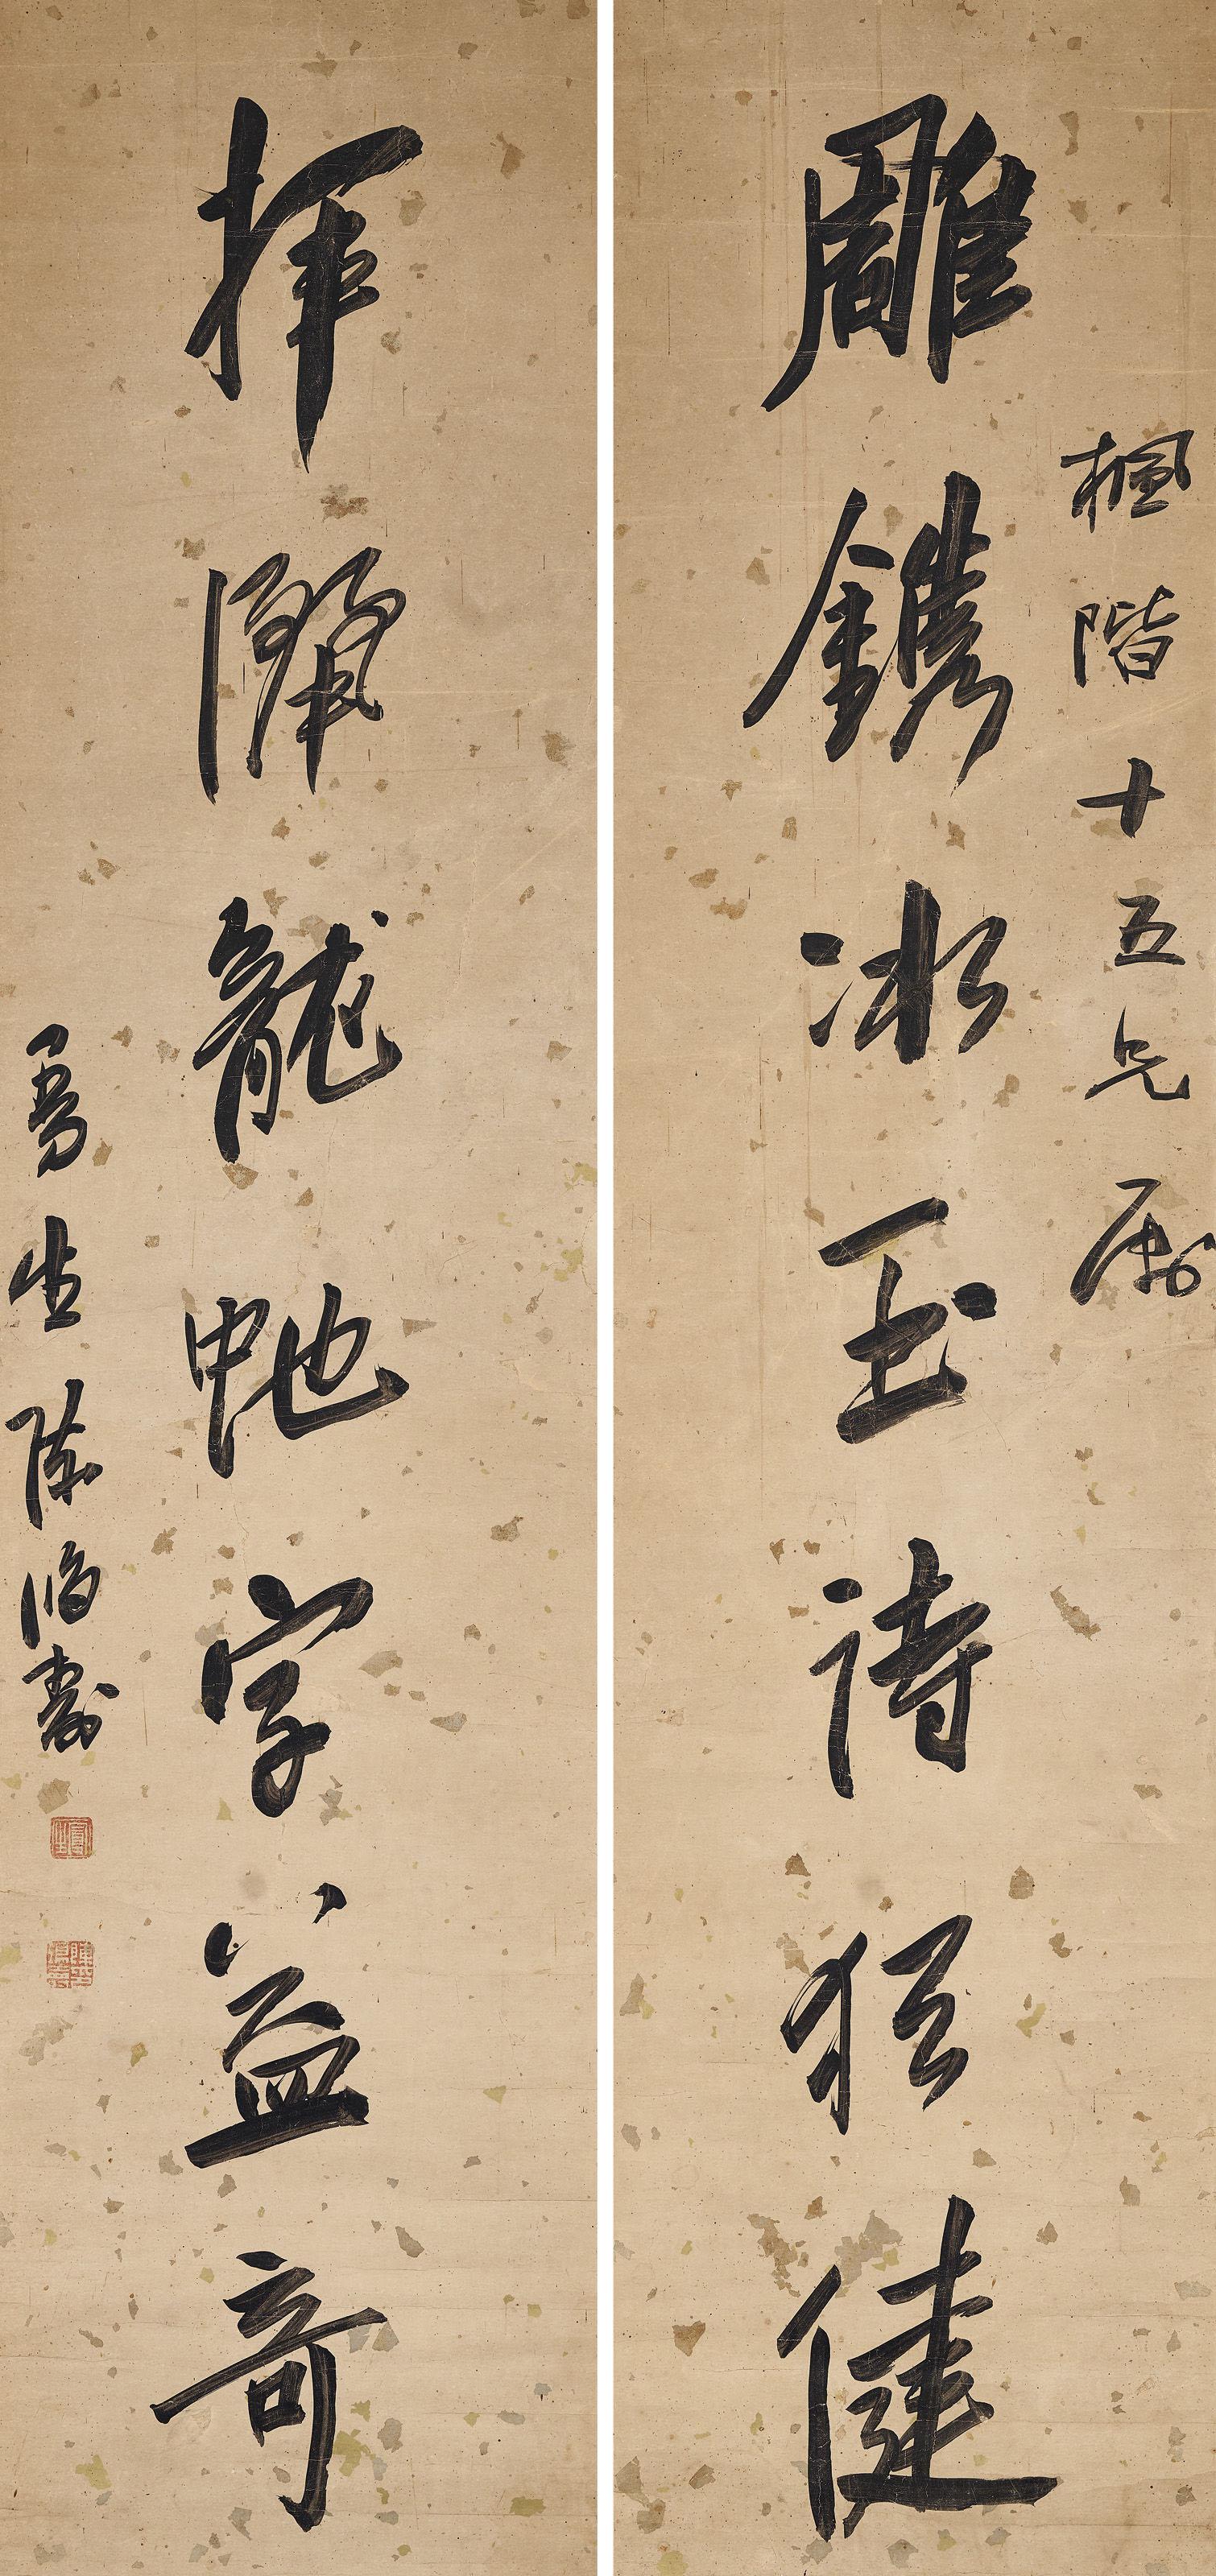 楓階十五兄屬
雕鐫冰玉詩猶健
揮灑龍虵字益奇
曼生陳鴻壽